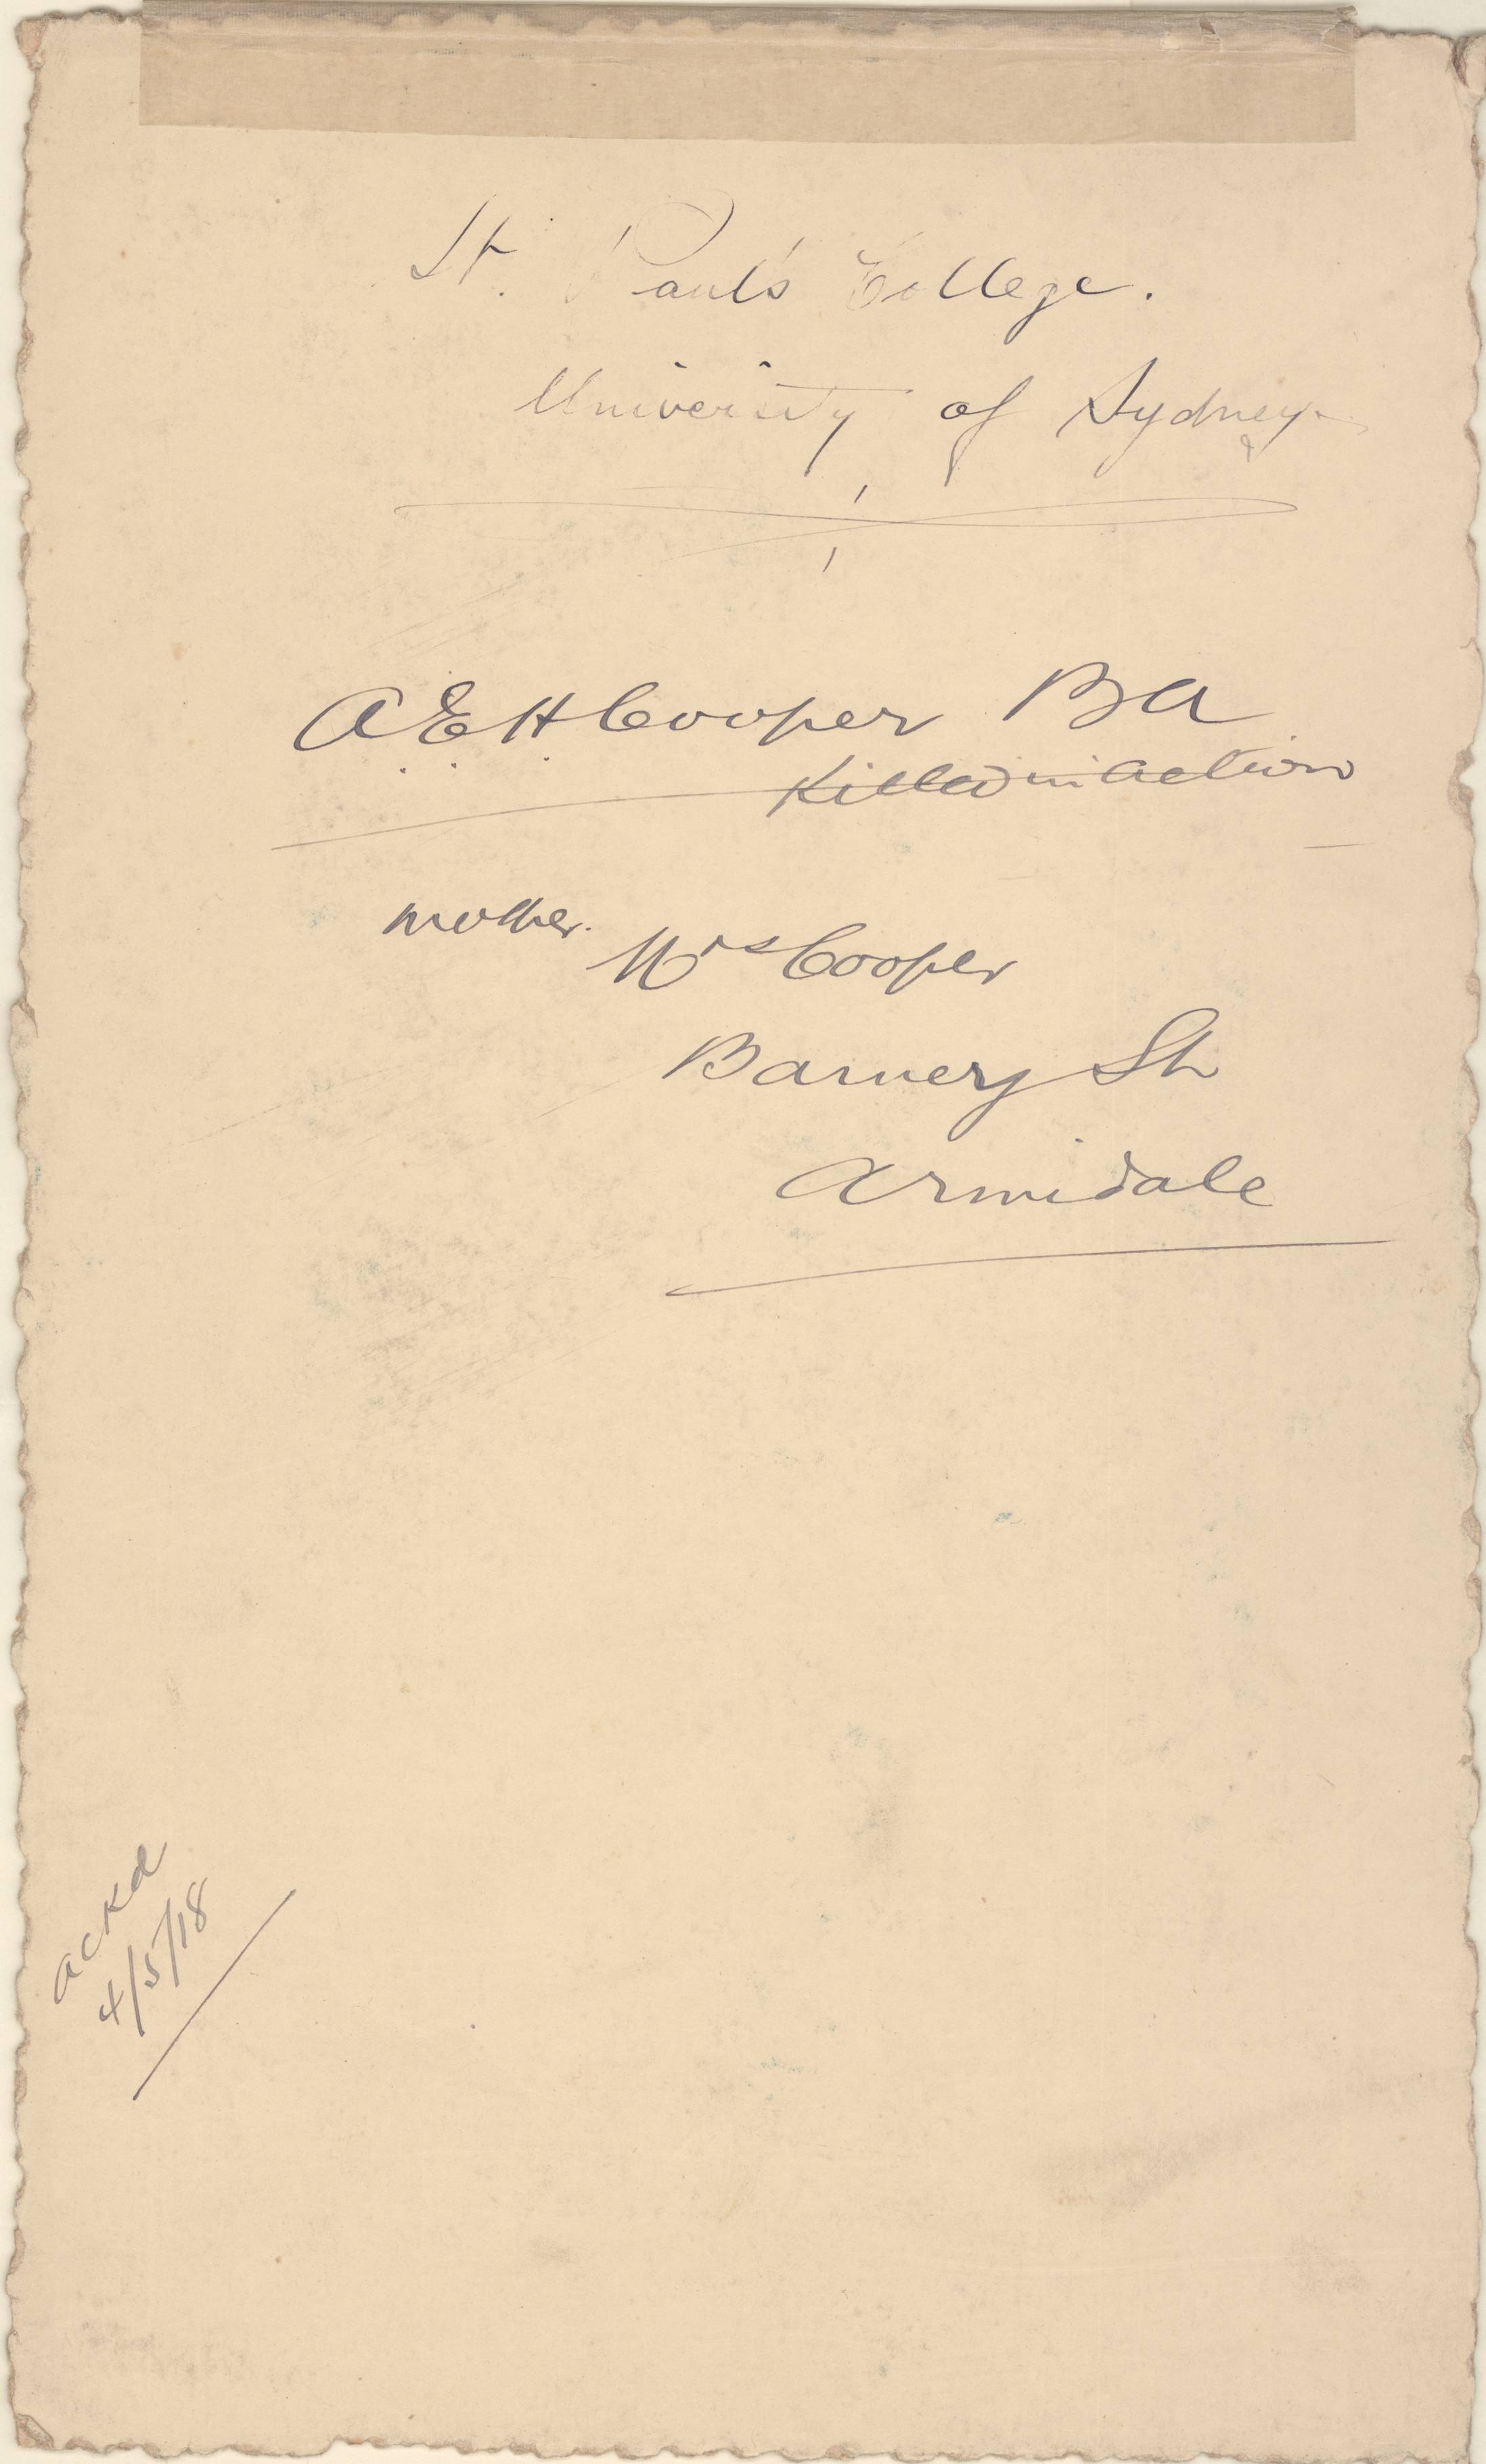 St. Paul's College.
University of Sydney
A. E. H. Cooper BA
Killed in action
mother.
Mrs Cooper
Barney St
Armidale
ackd
4/5/18